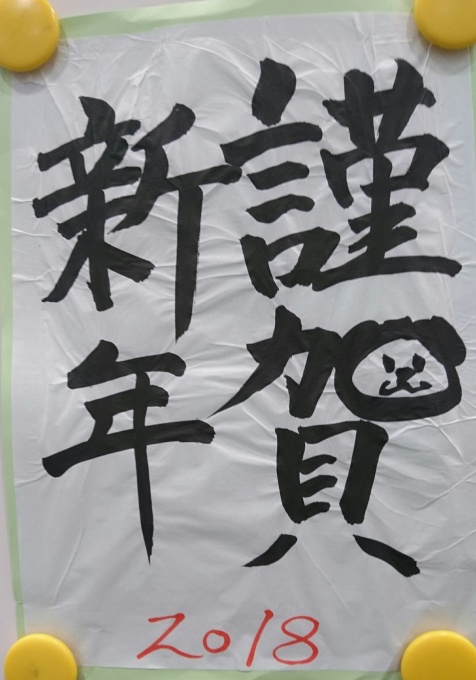 謹賀
新年
2018